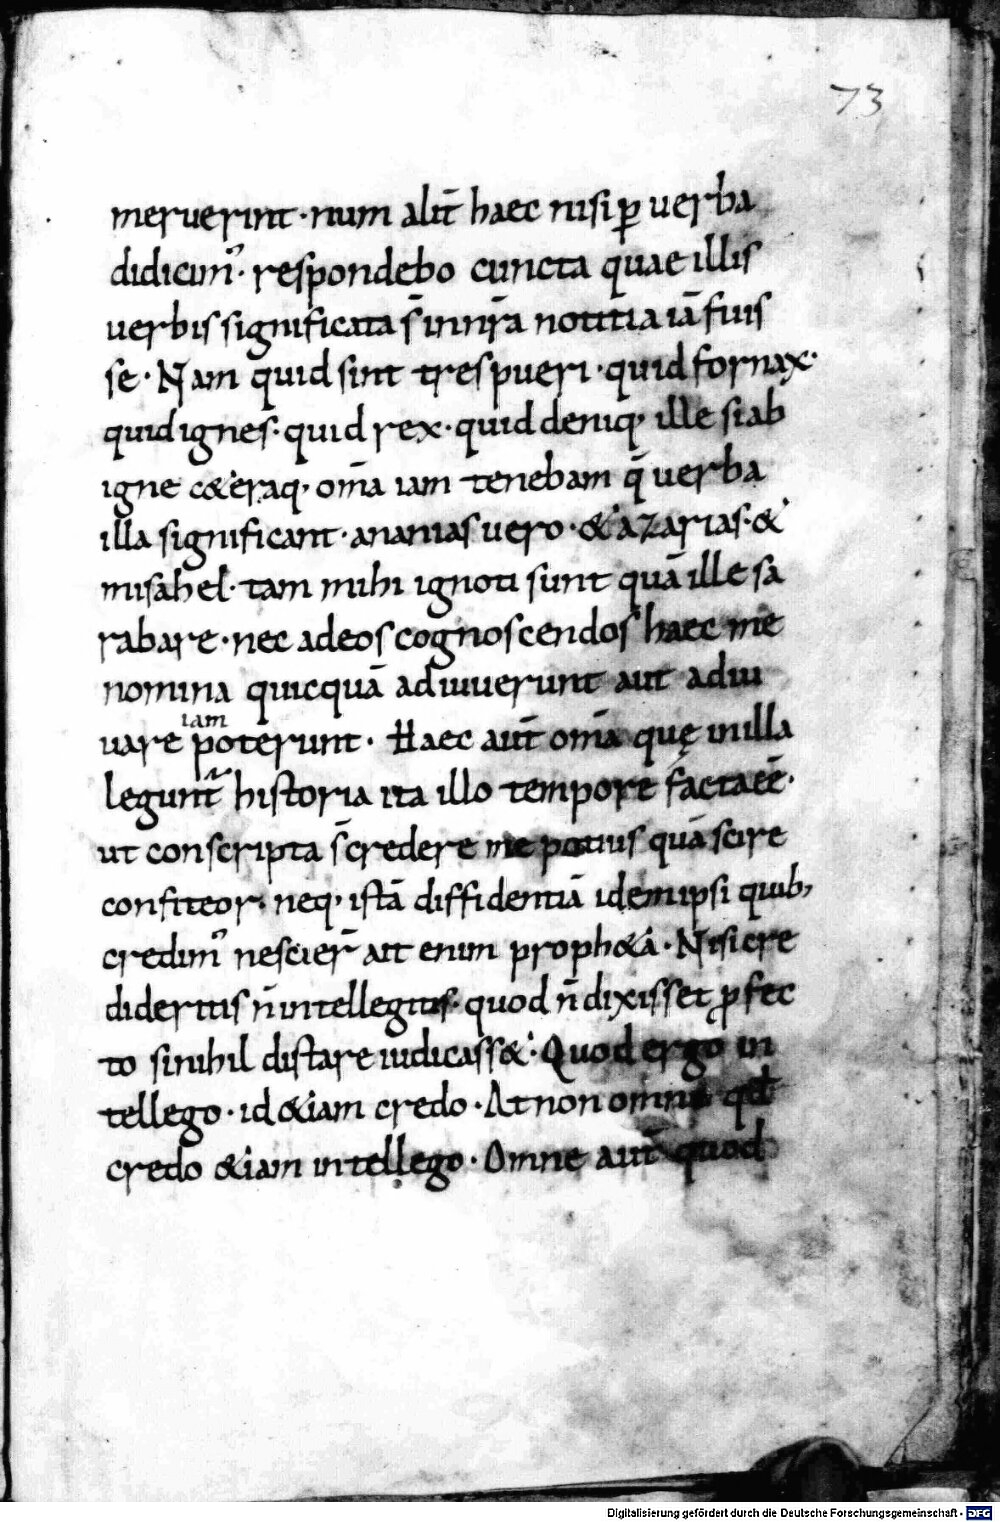 73
meruerint · num alit̄ haec nisi ꝑ uerba
didicim᾿ · respondebo cuncta quae illis
uerbis significata s̄ in nr̄a notitia iā fuis
se · Nam quid sint tres pueri · quid fornax ·
quid ignes · quid rex · quid deniq; ille si ab
igne c&eraq; om̄a iam tenebam q̄ uerba
illa significant · ananias uero · & azarias · &
misahel · tam mihi ignoti sunt quā ille sa
rabare · nec ad eos cognoscendos haec me
nomina quicquā adiuuerunt aut adiu
uare iam poterunt · Haec aut̄ om̄a quę in illa
legunt᷑ historia ita illo tempore facta eē ·
ut conscripta s̄ credere me potius quā scire
confiteor · neq; istā diffidentiā idem ipsi quib;
credim᾿ nescier̄ ait enim proph&a · Nisi cre
dideritis n̄ intellegitis · quod n̄ dixisset ꝓfec
to si nihil distare iudicass& · Quod ergo in
tellego · id &iam credo · At non omne qđ
credo &iam intellego · Omne aut̄ quod
Digitalisierung gefördert durch die Deutsche Forschungsgemeinschaft - DFG